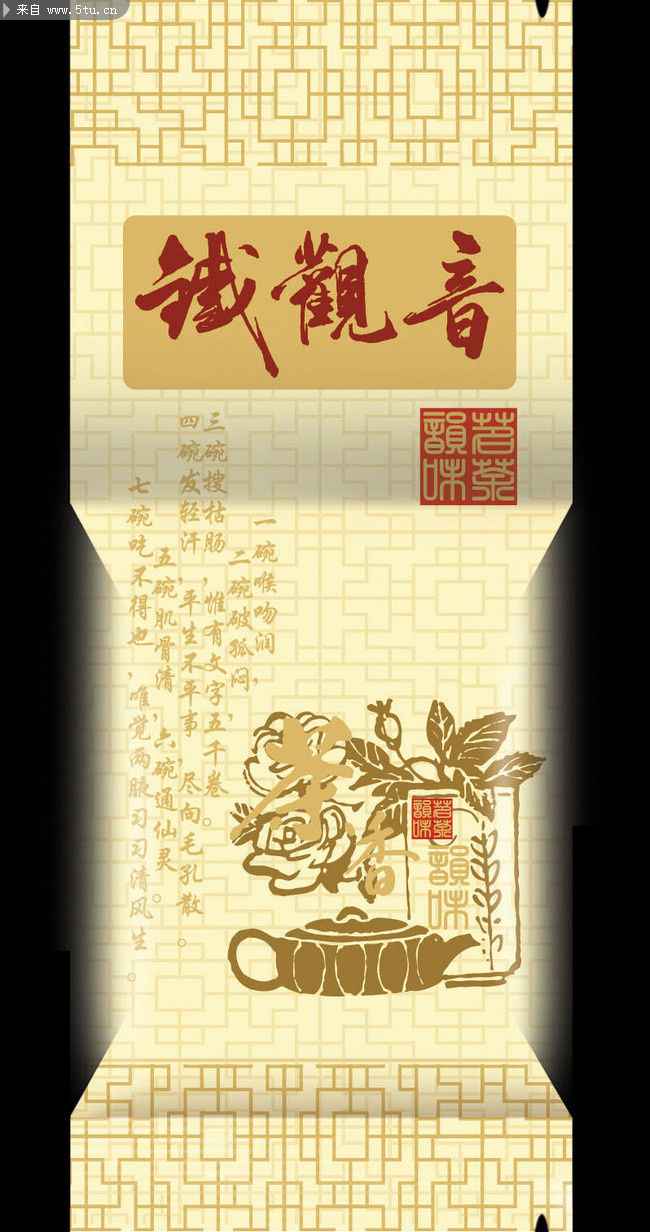 来自 www.5tu.cn
鐵觀音
茗茶
韻味
一碗喉吻润，
二碗破孤闷，
三碗搜枯肠，惟有文字五千卷。
四碗发轻汗，平生不平事，尽向毛孔散。
五碗肌骨清，六碗通仙灵。
七碗吃不得也，唯觉两腋习习清风生。
茶香
茗茶
韻味
韻味